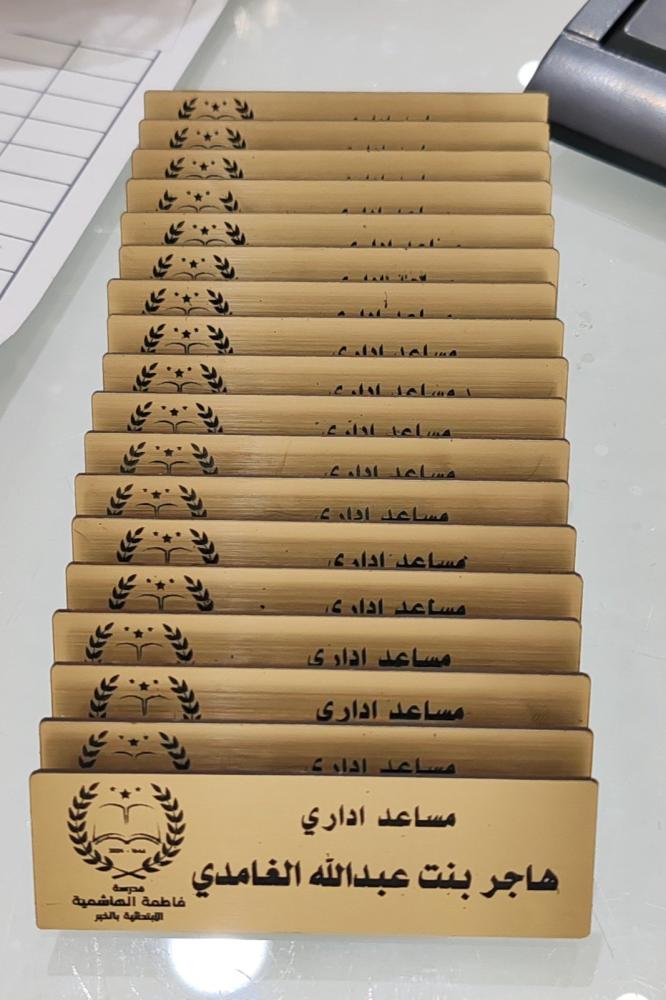 مساعد اداري
مساعد اداري
مساعد اداري
مساعد اداري
مساعد اداري
مساعد اداري
مساعد اداري
مساعد اداري
مساعد اداري
مساعد اداري
مساعد اداري
مساعد اداري
هاجر بنت عبدالله الغامدي
مدرسة
فاطمة الهاشمية
الابتدائية بالخبر